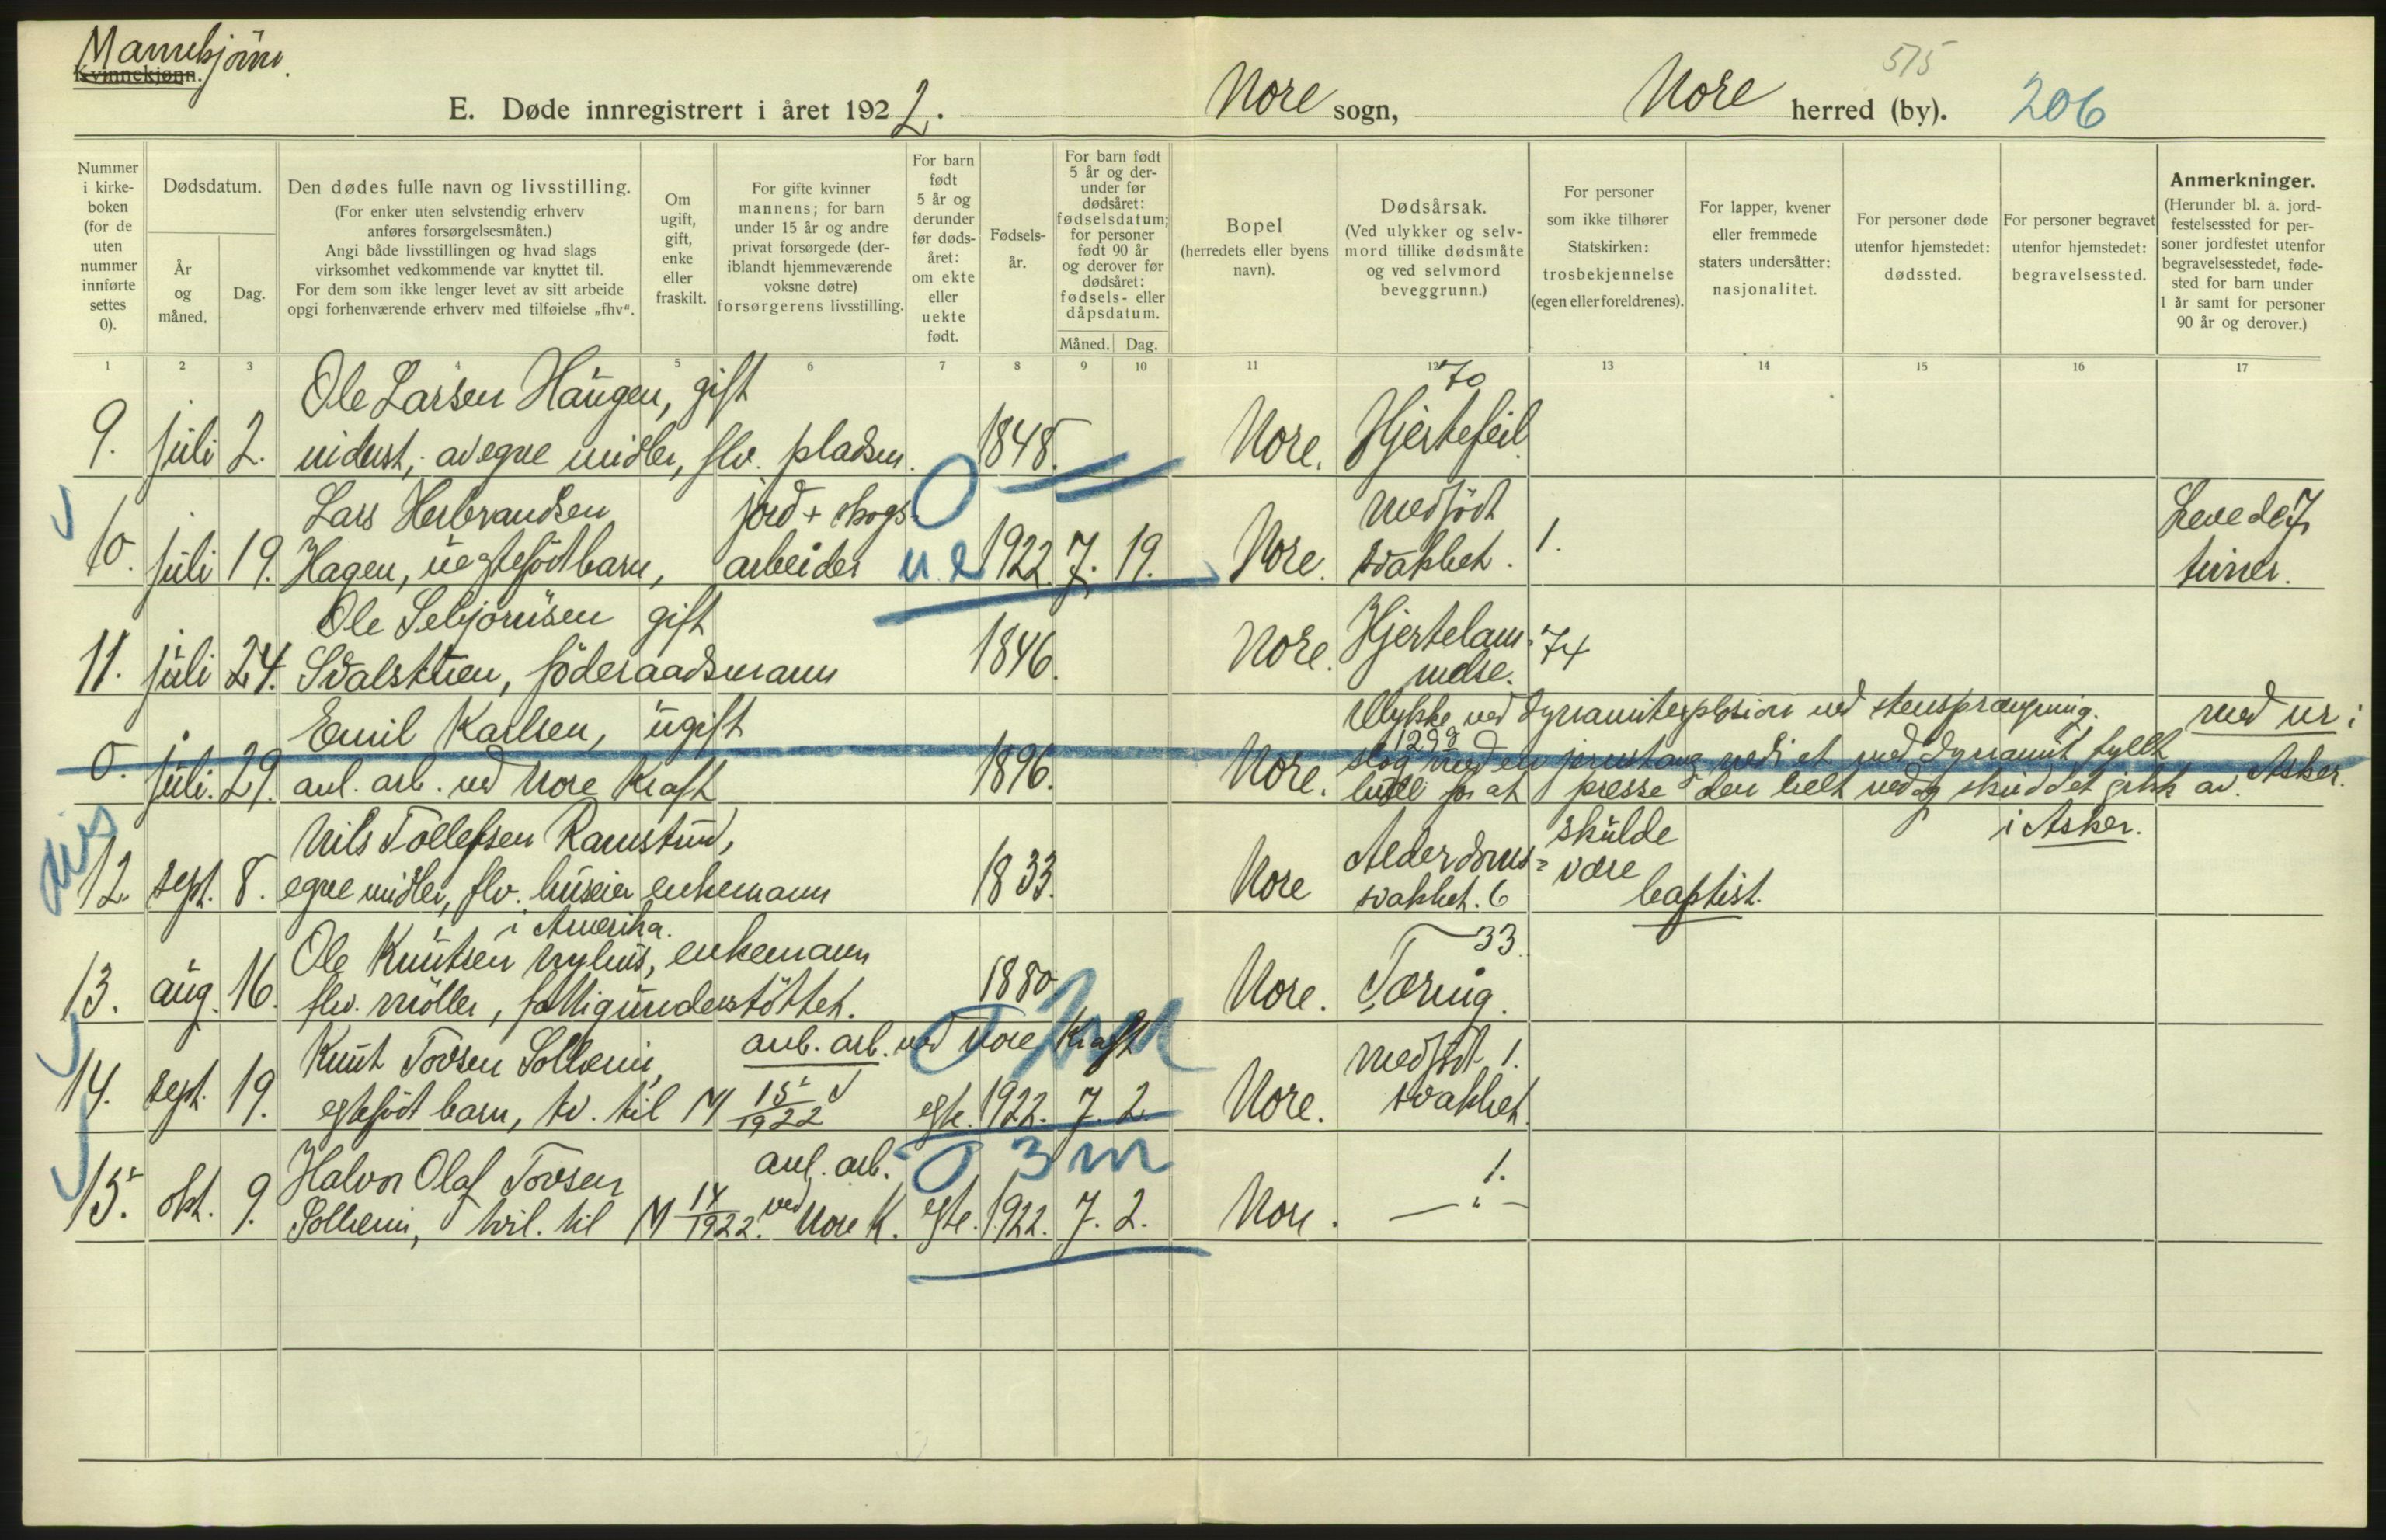 Mannkjønn.
Kvinnekjønn.
515
E. Døde innregistrert i året 1922. Nore sogn, Nore herred (by). 206
Nummer i kirkeboken (for de uten nummer innførte settes 0).
Dødsdatum.
År og måned.
Dag.
Den dødes fulle navn og livsstilling.
(For enker uten selvstendig erhverv anføres forsørgelsesmåten.)
Angi både livsstillingen og hvad slags virksomhet vedkommende var knyttet til.
For dem som ikke lenger levet av sitt arbeide opgi forhenværende erhverv med tilføielse „fhv“.
Om ugift, gift, enke eller fraskilt.
For gifte kvinner mannens; for barn under 15 år og andre privat forsørgede (deriblandt hjemmeværende voksne døtre) forsørgerens livsstilling.
For barn født 5 år og derunder før dødsåret: om ekte eller uekte født.
Fødselsår.
For barn født 5 år og derunder før dødsåret: fødselsdatum; for personer født 90 år og derover før dødsåret: fødsels- eller dåpsdatum.
Måned. Dag.
Bopel (herredets eller byens navn).
Dødsårsak.
(Ved ulykker og selvmord tillike dødsmåte og ved selvmord beveggrunn.)
For personer som ikke tilhører Statskirken: trosbekjennelse (egen eller foreldrenes).
For lapper, kvener eller fremmede staters undersåtter: nasjonalitet.
For personer døde utenfor hjemstedet: dødssted.
For personer begravet utenfor hjemstedet: begravelsessted.
Anmerkninger.
(Herunder bl. a. jordfestelsessted for personer jordfestet utenfor begravelsesstedet, fødested for barn under 1 år samt for personer 90 år og derover.)
1 2 3 4 5 6 7 8 9 10 11 12 13 14 15 16 17
Ole Larsen Haugen, gift 70
9. juli 2. av egne midler, flv. pladsm. 1848. Nore. Hjertefeil.
Lars Herbrandsen jord + skogs- 0 medfødt Levede 7
10. juli 19. Hagen, uegtefødt barn, arbeider u. e 1922. 7. 19. Nore. svakhet. 1. timer.
Ole Sebjørnsen gift Hjertelam-
11. juli 24. föderaadsmann 1846. Nore. melse. 74
Emil Karlsen, ugift Ulykke ved dynamitexplosion ved stensprængning. med nr i
0. juli. 29. anl. arb. ved Nore Kraft 1896. Nore. slog med en jernstang ned i et med dynamit fyllt Asker.
129
for at presse den helt ned og skuddet gikk av.
Nils Tollefsen Ramstud, skulde i Asker.
12. sept. 8. egne midler, flv. huseier enkemann 1833. Nore Alderdoms- være
i Amerika. svakhet. 6 baptist.
Ole Knutsen Nyhus, enkemann 33.
13. aug. 16. flv. möller, fattigunderstöttet. 1880 Nore. Tæring.
Knut Tovsen Solheim, anl. arb. ved Nore Kraft 0 2m medfødt 1.
14. sept. 19. egtefødt barn, tv. til M 15/1922 egte. 1922. 7. 2. Nore. svakhet.
Halvor Olaf Tovsen anl. arb. 0 3 m 1.
15. okt. 9. Solheim, tvil. til M 14/1922. ved Nore K. egte. 1922. 7. 2. Nore. — " —